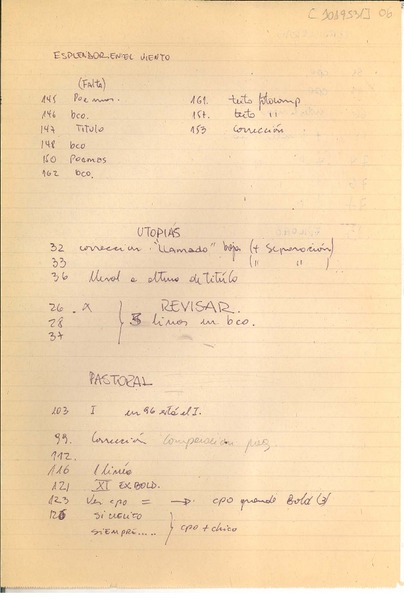 [101953/] 06
ESPLENDOR EN EL VIENTO
(Falta)
145 Poemas.
146 bco.
147 Titulo
148 bco
150 Poemas
162 bco.
161. texto fotocomp
157. texto "
153 corrección
UTOPIAS
32 correccion "Llamado" baja (+ separación)
33 (" ")
36 a altura de título
26. X REVISAR.
28 3 lineas en bco.
37
PASTORAL
103 I en 96 está el I.
99. Corrección Comparación pag.
112.
116 1 linea
121 XI EX BOLD.
123 Ver cpo = → cpo grande Bold (3)
126 silencio
siempre..... cpo + chico